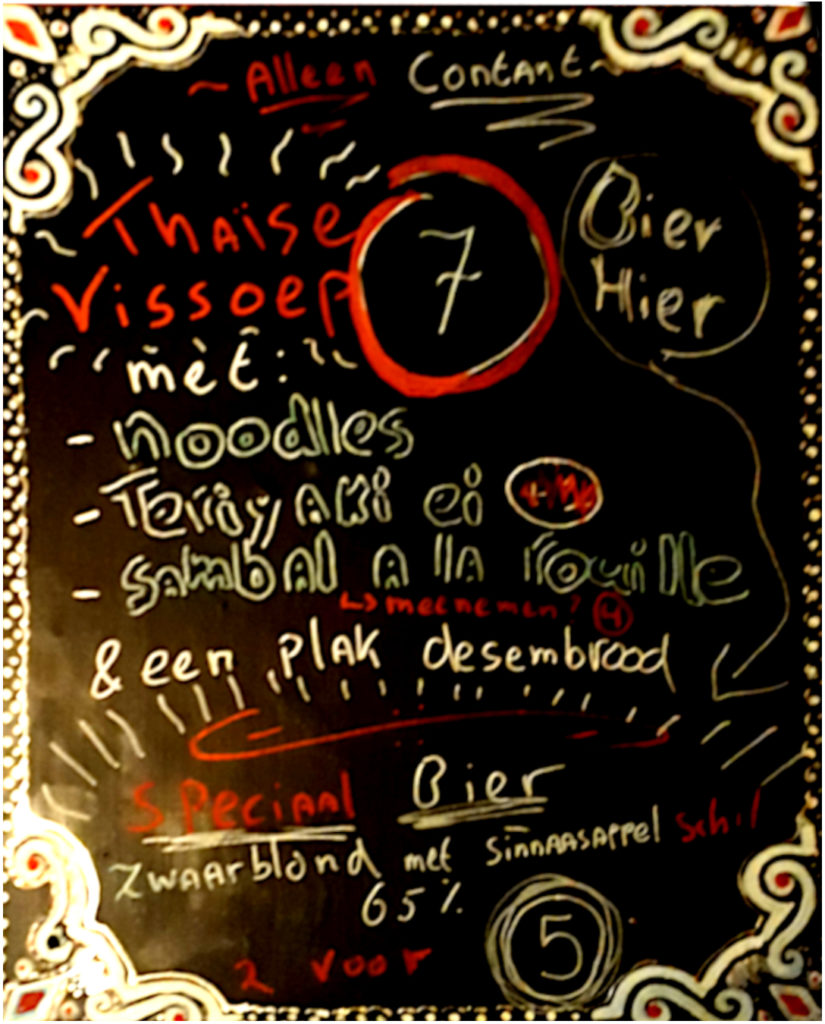 ~ Alleen Contant ~
Thaise
Vissoep
7
Bier
Hier
met:
- noodles
- Teriyaki ei
- sambal a lla rouille
↳ meenemen? 4
& een plak desembrood
Speciaal Bier
Zwaarblond met sinnaasappel schil
65%
2 voor 5